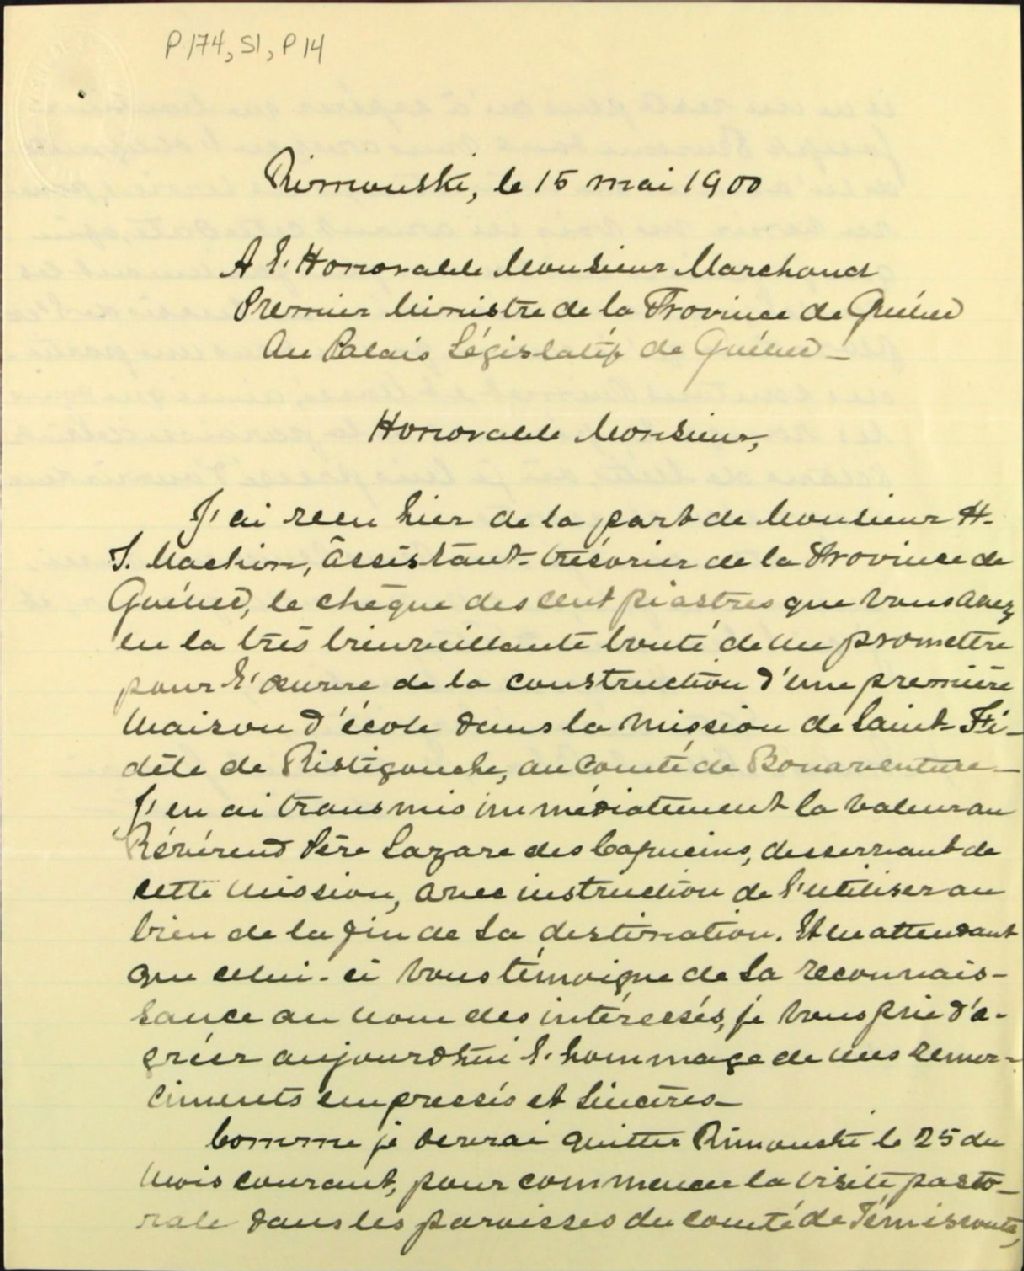 P174, S1, P14
Rimouski, le 15 mai 1900
A l'Honorable Monsieur Marchand
Premier Ministre de la Province de Québec
Au Palais Législatif de Québec—
Honorable Monsieur,
J'ai reçu hier de la part de Monsieur H.
T. Machin, assistant-trésorier de la Province de
Québec, le chèque des cent piastres que vous avez
eu la très bienveillante bonté de me promettre
pour l'œuvre de la construction d'une première
maison d'école dans la mission de Saint-Fi-
dèle de Ristigouche, au comté de Bonaventure—
J'en ai transmis immédiatement la valeur au
Révérend Père Lazare des Capucins, desservant de
cette mission, avec instruction de l'utiliser au
bien de la fin de sa destination. Et en attendant
que celui-ci vous témoigne de sa reconnais-
sance au nom des intéressés, je vous prie d'a-
gréer aujourd'hui l'hommage de mes remer-
ciments empressés et sincères—
Comme je devrai quitter Rimouski le 25 du
mois courant, pour commencer la visite pasto-
rale dans les paroisses du comté de Témiscouata,